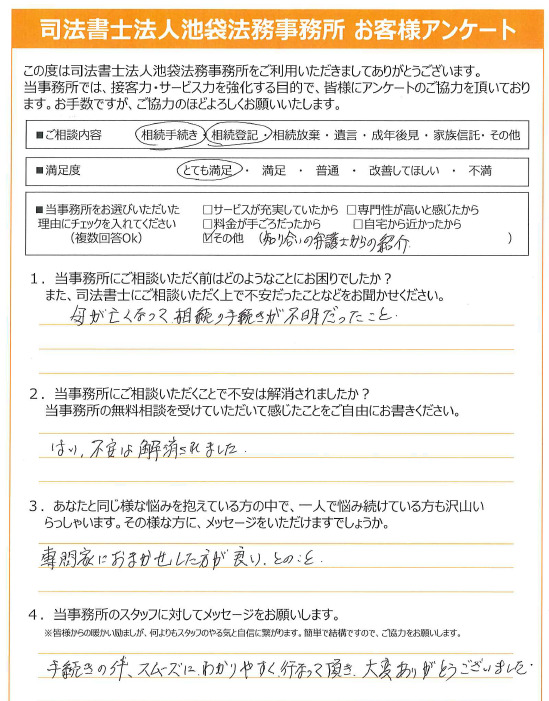 司法書士法人池袋法務事務所 お客様アンケート
この度は司法書士法人池袋法務事務所をご利用いただきましてありがとうございます。
当事務所では、接客力・サービス力を強化する目的で、皆様にアンケートのご協力を頂いており
ます。お手数ですが、ご協力のほどよろしくお願いいたします。
■ご相談内容 相続手続き・相続登記・相続放棄・遺言・成年後見・家族信託・その他
■満足度 とても満足 ・ 満足 ・ 普通 ・ 改善してほしい ・ 不満
■当事務所をお選びいただいた □サービスが充実していたから □専門性が高いと感じたから
理由にチェックを入れてください □料金が手ごろだったから □自宅から近かったから
(複数回答Ok) ☑その他 (知り合いの弁護士からの紹介 )
1．当事務所にご相談いただく前はどのようなことにお困りでしたか？
また、司法書士にご相談いただく上で不安だったことなどをお聞かせください。
母が亡くなって相続の手続きが不明だったこと.
2．当事務所にご相談いただくことで不安は解消されましたか？
当事務所の無料相談を受けていただいて感じたことをご自由にお書きください。
はい、不安は解消されました.
3．あなたと同じ様な悩みを抱えている方の中で、一人で悩み続けている方も沢山い
らっしゃいます。その様な方に、メッセージをいただけますでしょうか。
専門家におまかせした方が良い、とのこと.
4．当事務所のスタッフに対してメッセージをお願いします。
※皆様からの暖かい励ましが、何よりもスタッフのやる気と自信に繋がります。簡単で結構ですので、ご協力をお願いします。
手続きの件、スムーズに、わかりやすく、行なって頂き、大変ありがとうございました.